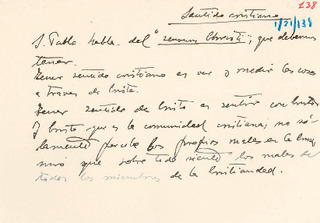 238
Sentido cristiano
1/21/138
S. Pablo habla del "sensus Christi", que debemos
tener.
Tener sentido cristiano es ver y medir las cosas
a través de Cristo.
Tener sentido de Cristo es sentir con Cristo
Y Cristo que es la comunidad cristiana, no so-
lamente los propios males en la
sino que sobre todo siente los males de
todos los miembros de la Cristiandad.